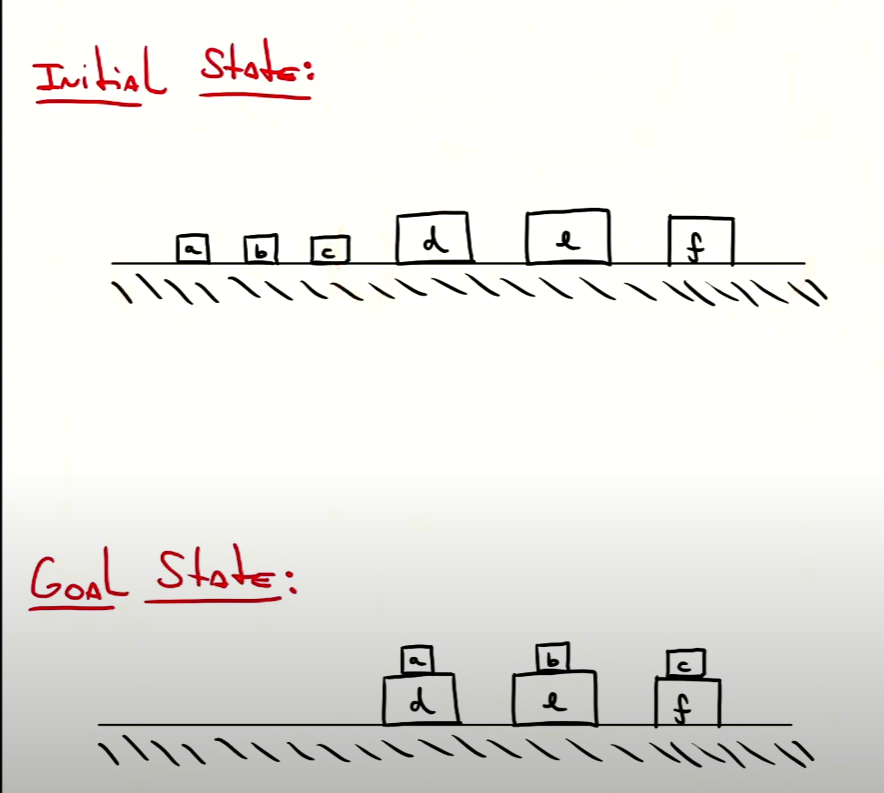 Initial State:
a b c d e f
Goal State:
a b c
d e f